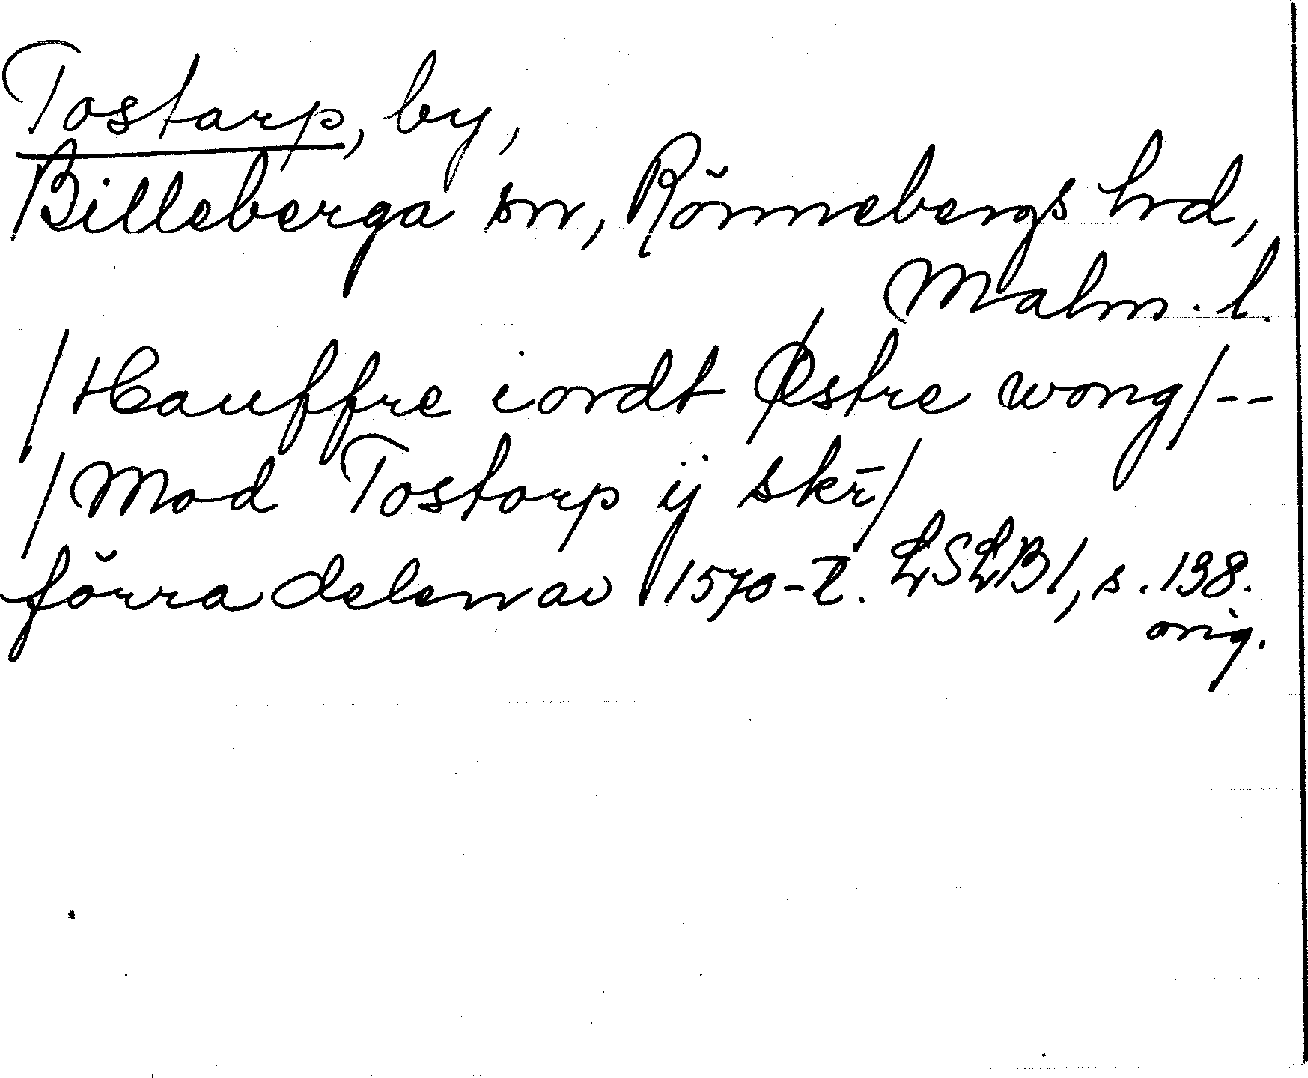 Tostarp, by,
Billeberga sn, Rönnebergs hrd,
Malm. l.
/Hauffre iordt Østre wong/--
/Mod Tostorp ij skr̄/
förra delen av 1570-t. LSLB1, s. 138.
orig.